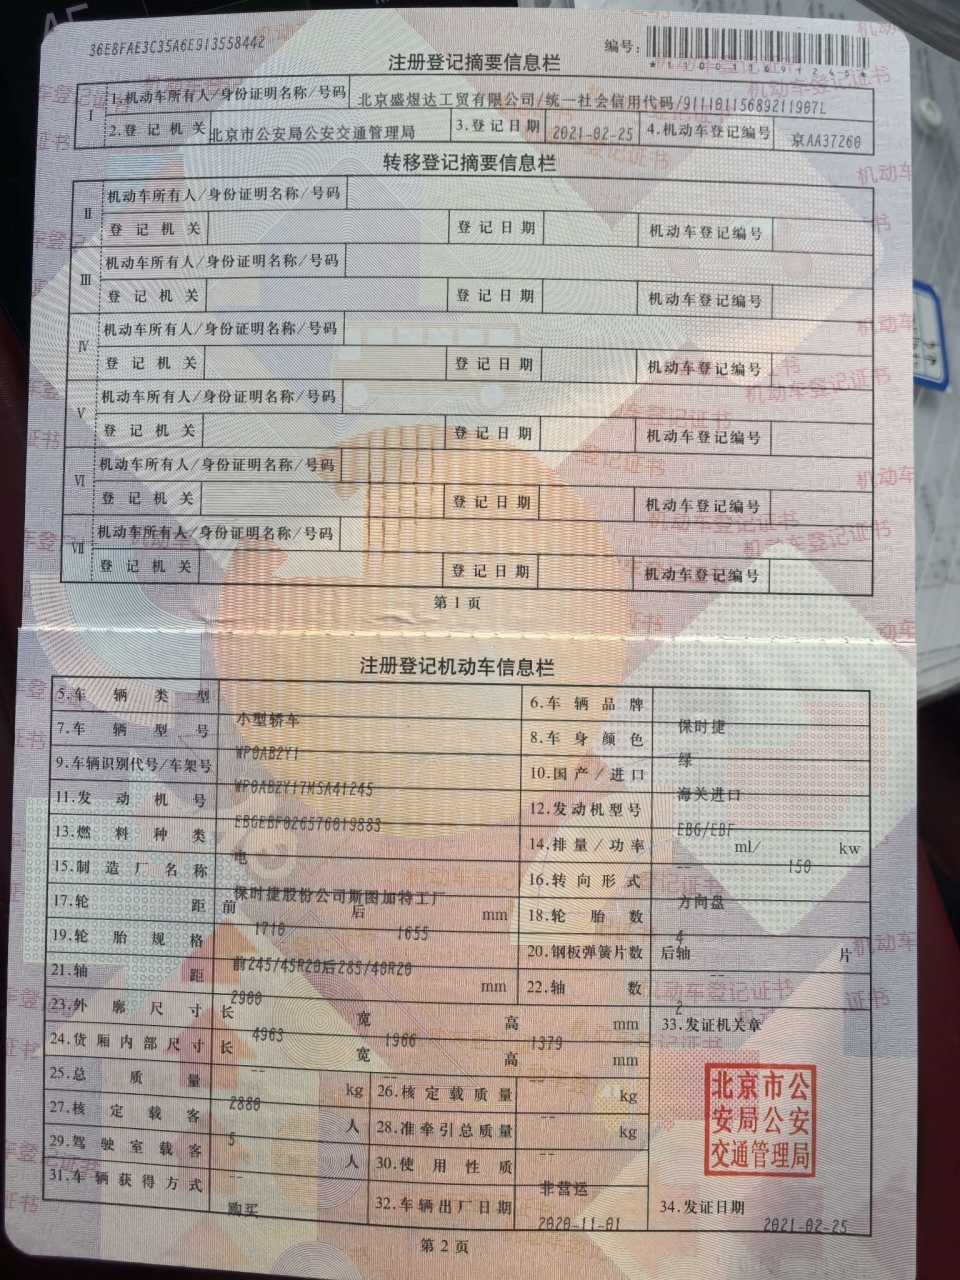 36E8FAE3C35A6E913558442
编号:
注册登记摘要信息栏
I 1.机动车所有人/身份证明名称/号码 北京盛煜达工贸有限公司/统一社会信用代码/91110115689211907L
2.登记机关 北京市公安局公安交通管理局 3.登记日期 2021-02-25 4.机动车登记编号 京AA37260
转移登记摘要信息栏
II 机动车所有人/身份证明名称/号码
登记机关 登记日期 机动车登记编号
III 机动车所有人/身份证明名称/号码
登记机关 登记日期 机动车登记编号
IV 机动车所有人/身份证明名称/号码
登记机关 登记日期 机动车登记编号
V 机动车所有人/身份证明名称/号码
登记机关 登记日期 机动车登记编号
VI 机动车所有人/身份证明名称/号码
登记机关 登记日期 机动车登记编号
VII 机动车所有人/身份证明名称/号码
登记机关 登记日期 机动车登记编号
第1页
注册登记机动车信息栏
5.车辆类型 小型轿车 6.车辆品牌 保时捷
7.车辆型号 WP0AB2Y1 8.车身颜色 绿
9.车辆识别代号/车架号 WP0AB2Y17MSA41245 10.国产/进口 海关进口
11.发动机号 EBGEBF026576019883 12.发动机型号 EBG/EBF
13.燃料种类 电 14.排量/功率 -- ml/ 150 kw
15.制造厂名称 保时捷股份公司斯图加特工厂 16.转向形式 方向盘
17.轮距 前 1710 后 1655 mm 18.轮胎数 4
19.轮胎规格 前245/45R20后285/40R20 20.钢板弹簧片数 后轴 -- 片
21.轴距 2900 mm 22.轴数 2
23.外廓尺寸 长 4963 宽 1966 高 1379 mm 33.发证机关章
24.货厢内部尺寸 长 -- 宽 -- 高 -- mm
25.总质量 2880 kg 26.核定载质量 -- kg
27.核定载客 5 人 28.准牵引总质量 -- kg
29.驾驶室载客 -- 人 30.使用性质 非营运
31.车辆获得方式 购买 32.车辆出厂日期 2020-11-01 34.发证日期 2021-02-25
北京市公
安局公安
交通管理局
第2页